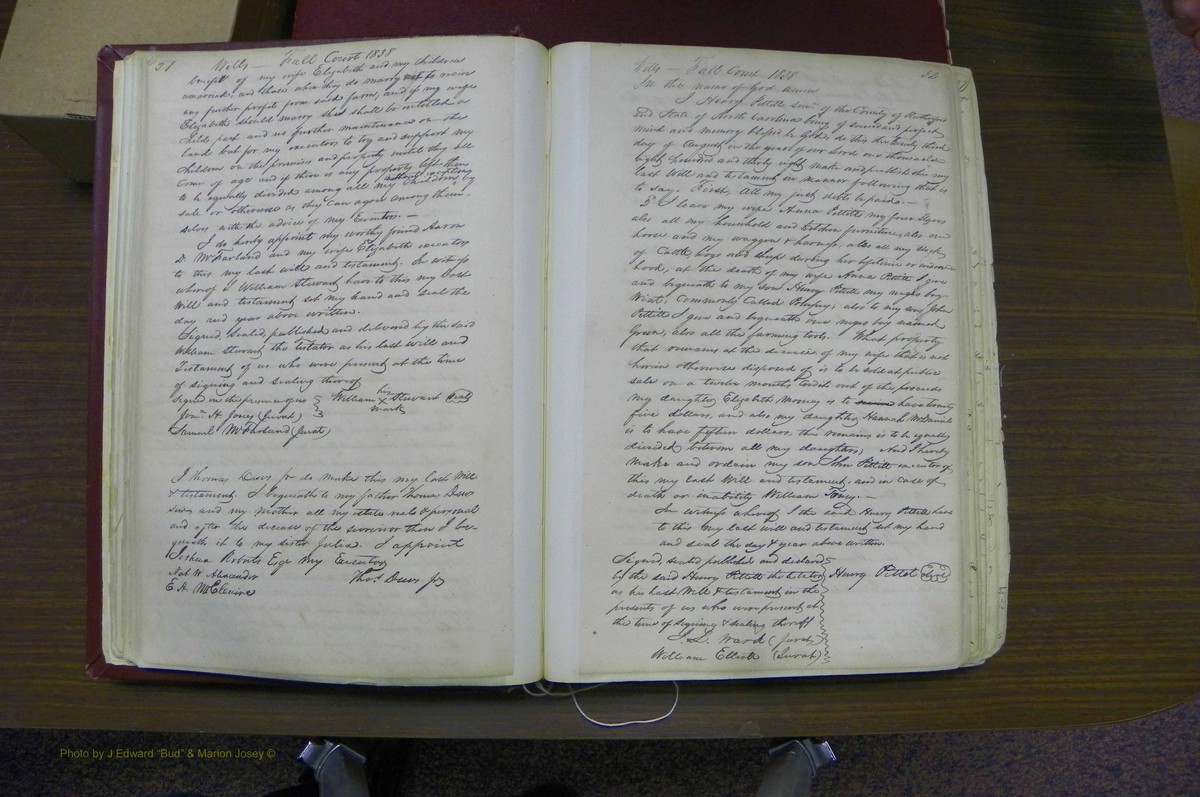 31 Wills — Fall Court 1838
benefit of my wife Elizabeth and my children
unmarried and those when they do marry not to receive
any further profits from said farm, and if my wife
Elizabeth should marry she shall be intitled a
Childs part and no further maintenance on the
land but for my executors to try and support my
children on the premises and property until they all
Come of age and if there is any property left then
to be equally divided among all my Children by
sale or otherwise as they can agree among them-
selves with the advice of my Executors. —
I do hereby appoint my worthy friend Aaron
D. McFarland and my wife Elizabeth executors
to this my last will and testament. In witness
whereof I William Stewart have to this my Last
Will and testament set my hand and seal the
day and year above written.
Signed, sealed, published and delivered by the said
William Stewart the testator as his last will and
Testament of us who were present at the time
of signing and sealing thereof
signed in the presence of us
William his X mark Stewart (seal)
Jonn. H. Jones (Jurat)
Samuel McFarland (Jurat)
I Thomas Dews Jr do make this my Last Will
& testament. I bequeathe to my father Thomas Dews
Senr and my mother all my estate real & personal
and after the decease of the survivor then I be-
queathe it to my sister Julia. I appoint
Joshua Roberts Esqr my Executor
Nat W. Alexander
Thos. Dews Jr
E. H. McClenine
Wills — Fall Court 1838 32
In the name of God Amen
I Henry Pettitt Senr. of the County of Rutherford
and State of North Carolina being of sound and perfect
mind and memory blessed be God: do this the twenty third
day of August in the year of our Lord one thousand
eight hundred and thirty eight make and publish this my
last Will and testament, in manner following that is
to say. First, All my just debts be paid. —
2d I leave my wife Anna Pettitt my four
also all my household and kitchen furniture, also one
horse and my waggon & harness, also all my stock
of Cattle, hogs and sheep during her lifetime or widow-
hood, at the death of my wife Anna Pettitt I give
and bequeathe to my son Henry Pettitt my negro boy
Wiat. Commonly Called Pompey; also to my son John
Pettitt I give and bequeath one negro boy named
Green, also all the farming tools. What property
that remains at the decease of my wife that is not
herein otherwise disposed of is to be sold at public
sale on a twelve months Credit out of the proceeds
my daughter Elizabeth Morney is to have twenty
five dollars, and also my daughter Hannah McDaniel
is to have fifteen dollars, the remains is to be equally
divided between all my daughters; And I hereby
make and ordain my son John Pettitt executor of
this my last Will and testament, and in case of
death or inability William Toney. —
In witness whereof I the said Henry Pettitt have
to this my last will and testament set my hand
and seal the day & year above written.
Signed sealed published and declared
by the said Henry Pettitt the testator
Henry Pettet (seal)
as his last Will & testament in the
presents of us who were present at
the time of signing & sealing thereof
J. L. Ward (Jurat)
William Elliott (Jurat)
Photo by J Edward "Bud" & Marion Josey ©